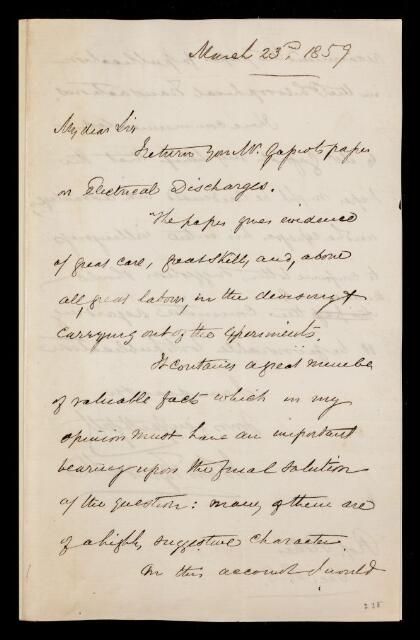 March 23rd. 1859
My dear Sir
I return you Mr. Gapiots paper
on Electrical Discharges.
The paper gives evidence
of great care, great skill, and, above
all, great labour, in the devising &
carrying out of the experiments.
It contains a great number
of valuable facts which in my
opinion must have an important
bearing upon the final solution
of the question: many of them are
of a highly suggestive character.
On this account I would